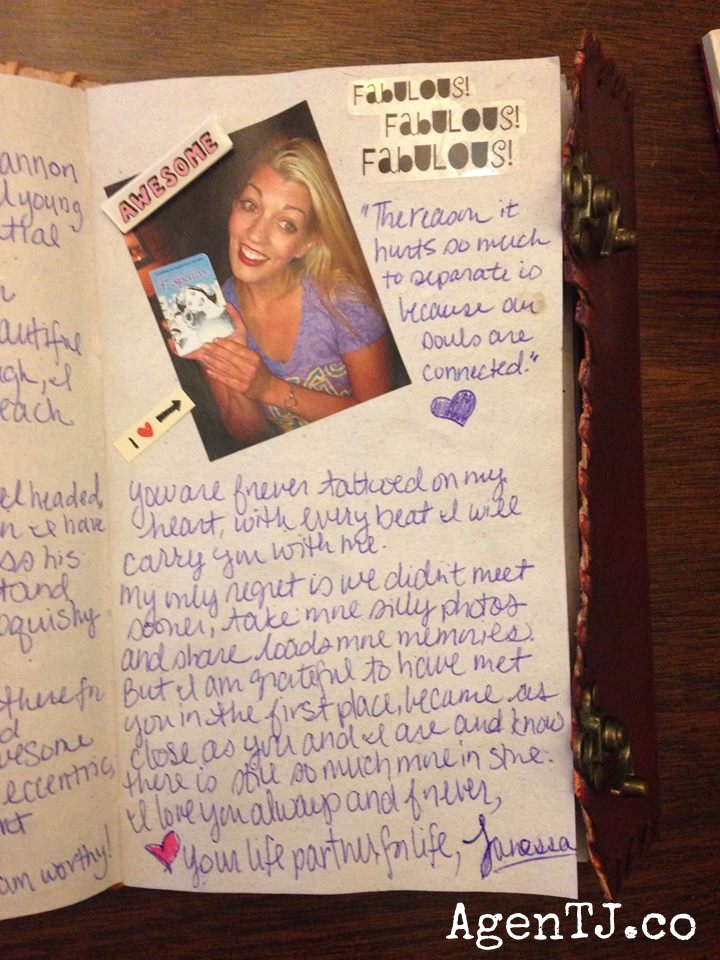 annon
young
tial
autiful
ugh, I
each
el headed,
n I have
so his
tand
squishy
there for
d
wesome
eccentric,
am worthy!
AWESOME
I ♥
FABULOUS!
FABULOUS!
FABULOUS!
"The reason it
hurts so much
to separate is
because our
souls are
connected."
You are forever tattooed on my
heart, with every beat I will
carry you with me.
My only regret is we didn't meet
sooner, take more silly photos
and share loads more memories.
But I am grateful to have met
you in the first place, became as
close as you and I are and know
there is still so much more in store.
I love you always and forever,
Your life partner for life, Janessa
AgenTJ.co